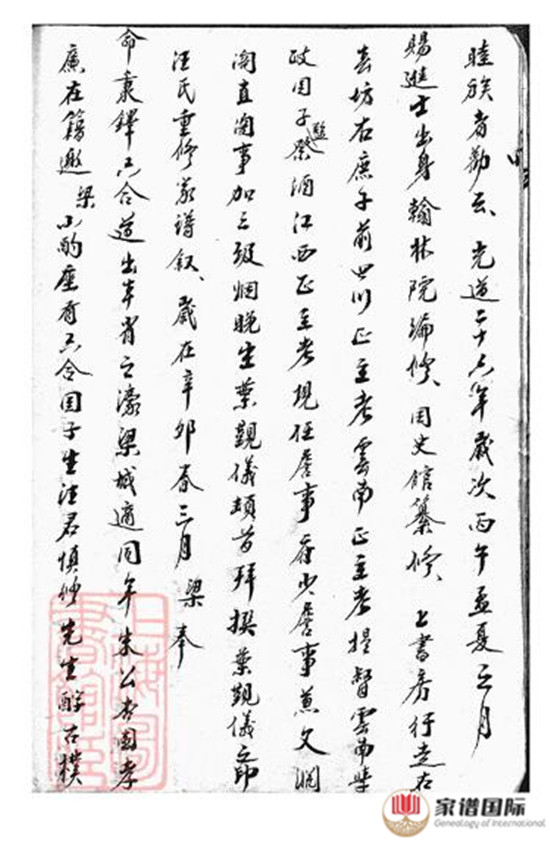 睦族者勸云、光道二十六年歲次丙午孟夏之月
賜進士出身翰林院編修、國史館纂修、上書房行走右
春坊右庶子前四川正主考雲南正主考提督雲南學
政國子監祭酒江西正主考現任詹事府少詹事兼文淵
閣直閣事加三級姻晚生葉觀儀頓首拜撰葉觀儀印
汪氏重修家譜叙、歲在辛卯春三月梁奉
命秉鐸六合道出本省之濠梁城適同年朱公杏園孝
廉在籍邀梁小酌座有六合國子生汪君慎修先生醇古樸
上海圖書館藏
家谱国际
Genealogy of International